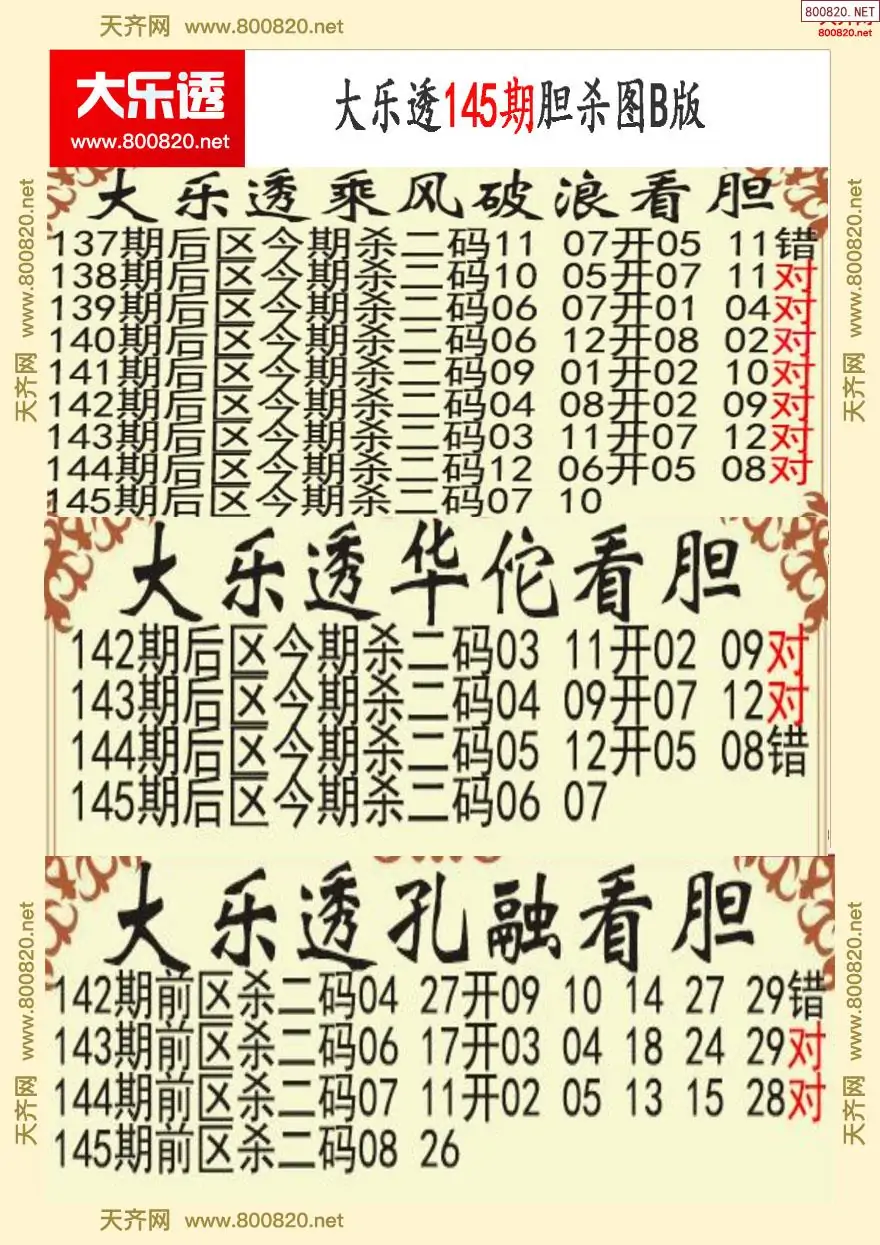 天齐网 www.800820.net
800820.NET
800820.net
大乐透
www.800820.net
大乐透145期胆杀图B版
大乐透乘风破浪看胆
137期后区今期杀二码11 07开05 11错
138期后区今期杀二码10 05开07 11对
139期后区今期杀二码06 07开01 04对
140期后区今期杀二码06 12开08 02对
141期后区今期杀二码09 01开02 10对
142期后区今期杀二码04 08开02 09对
143期后区今期杀二码03 11开07 12对
144期后区今期杀二码12 06开05 08对
145期后区今期杀二码07 10
大乐透华佗看胆
142期后区今期杀二码03 11开02 09对
143期后区今期杀二码04 09开07 12对
144期后区今期杀二码05 12开05 08错
145期后区今期杀二码06 07
大乐透孔融看胆
142期前区杀二码04 27开09 10 14 27 29错
143期前区杀二码06 17开03 04 18 24 29对
144期前区杀二码07 11开02 05 13 15 28对
145期前区杀二码08 26
天齐网 www.800820.net
天齐网 www.800820.net
天齐网 www.800820.net
天齐网 www.800820.net
天齐网 www.800820.net